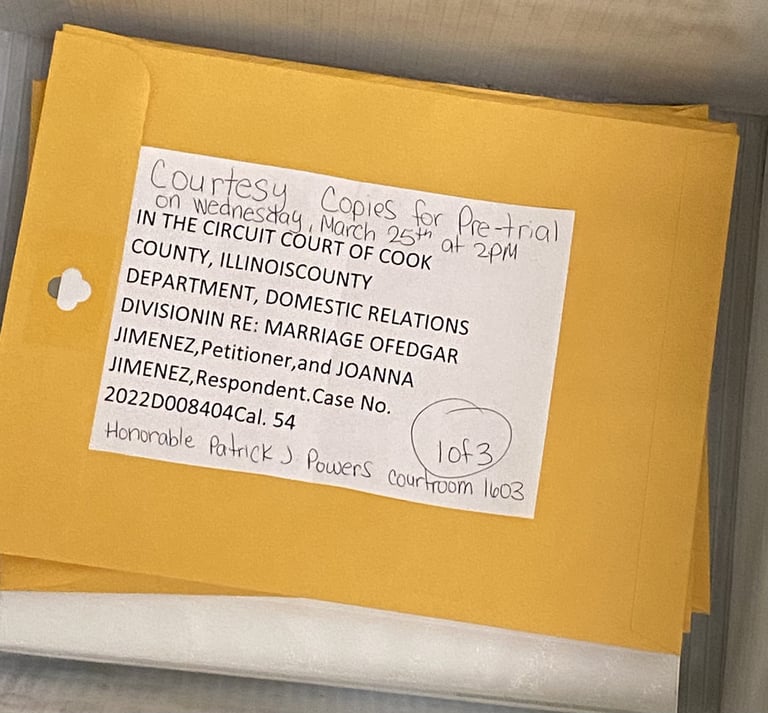 Courtesy Copies for Pre-trial
on Wednesday, March 25th at 2PM
IN THE CIRCUIT COURT OF COOK
COUNTY, ILLINOISCOUNTY
DEPARTMENT, DOMESTIC RELATIONS
DIVISIONIN RE: MARRIAGE OFEDGAR
JIMENEZ,Petitioner,and JOANNA
JIMENEZ,Respondent.Case No.
2022D008404Cal. 54
1 of 3
Honorable Patrick J Powers courtroom 1603